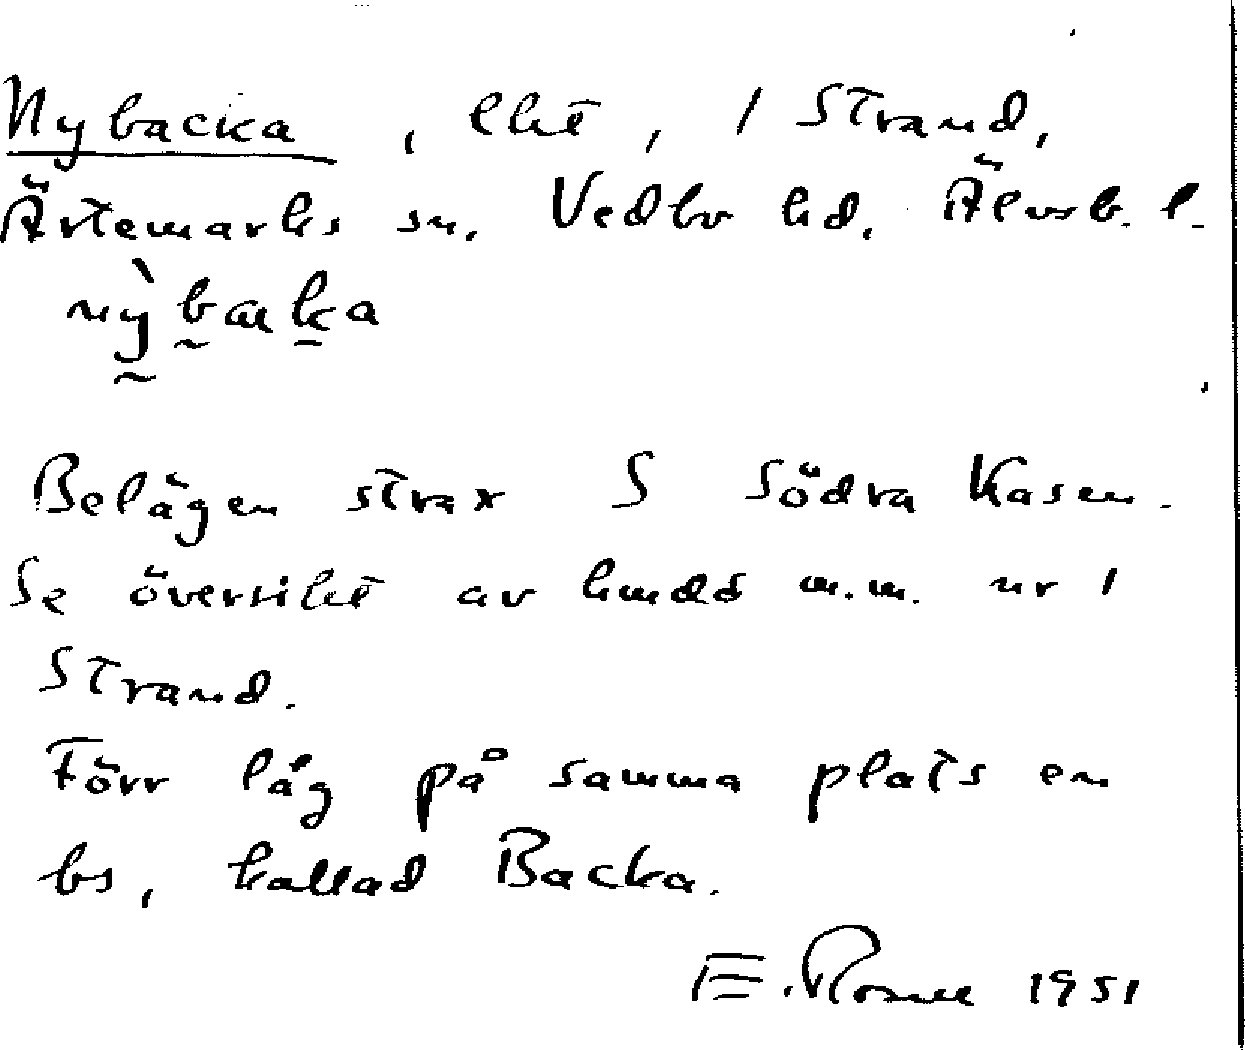 Nybacka, lht, 1 Strand,
Ärtemarks sn. Vedbo hd. Älvsb. l.
nỳbacka
Belägen strax S Södra Kasen.
Se översikt av hmdd m.m. nr 1
Strand.
Förr låg på samma plats en
bs, kallad Backa.
E. 1951